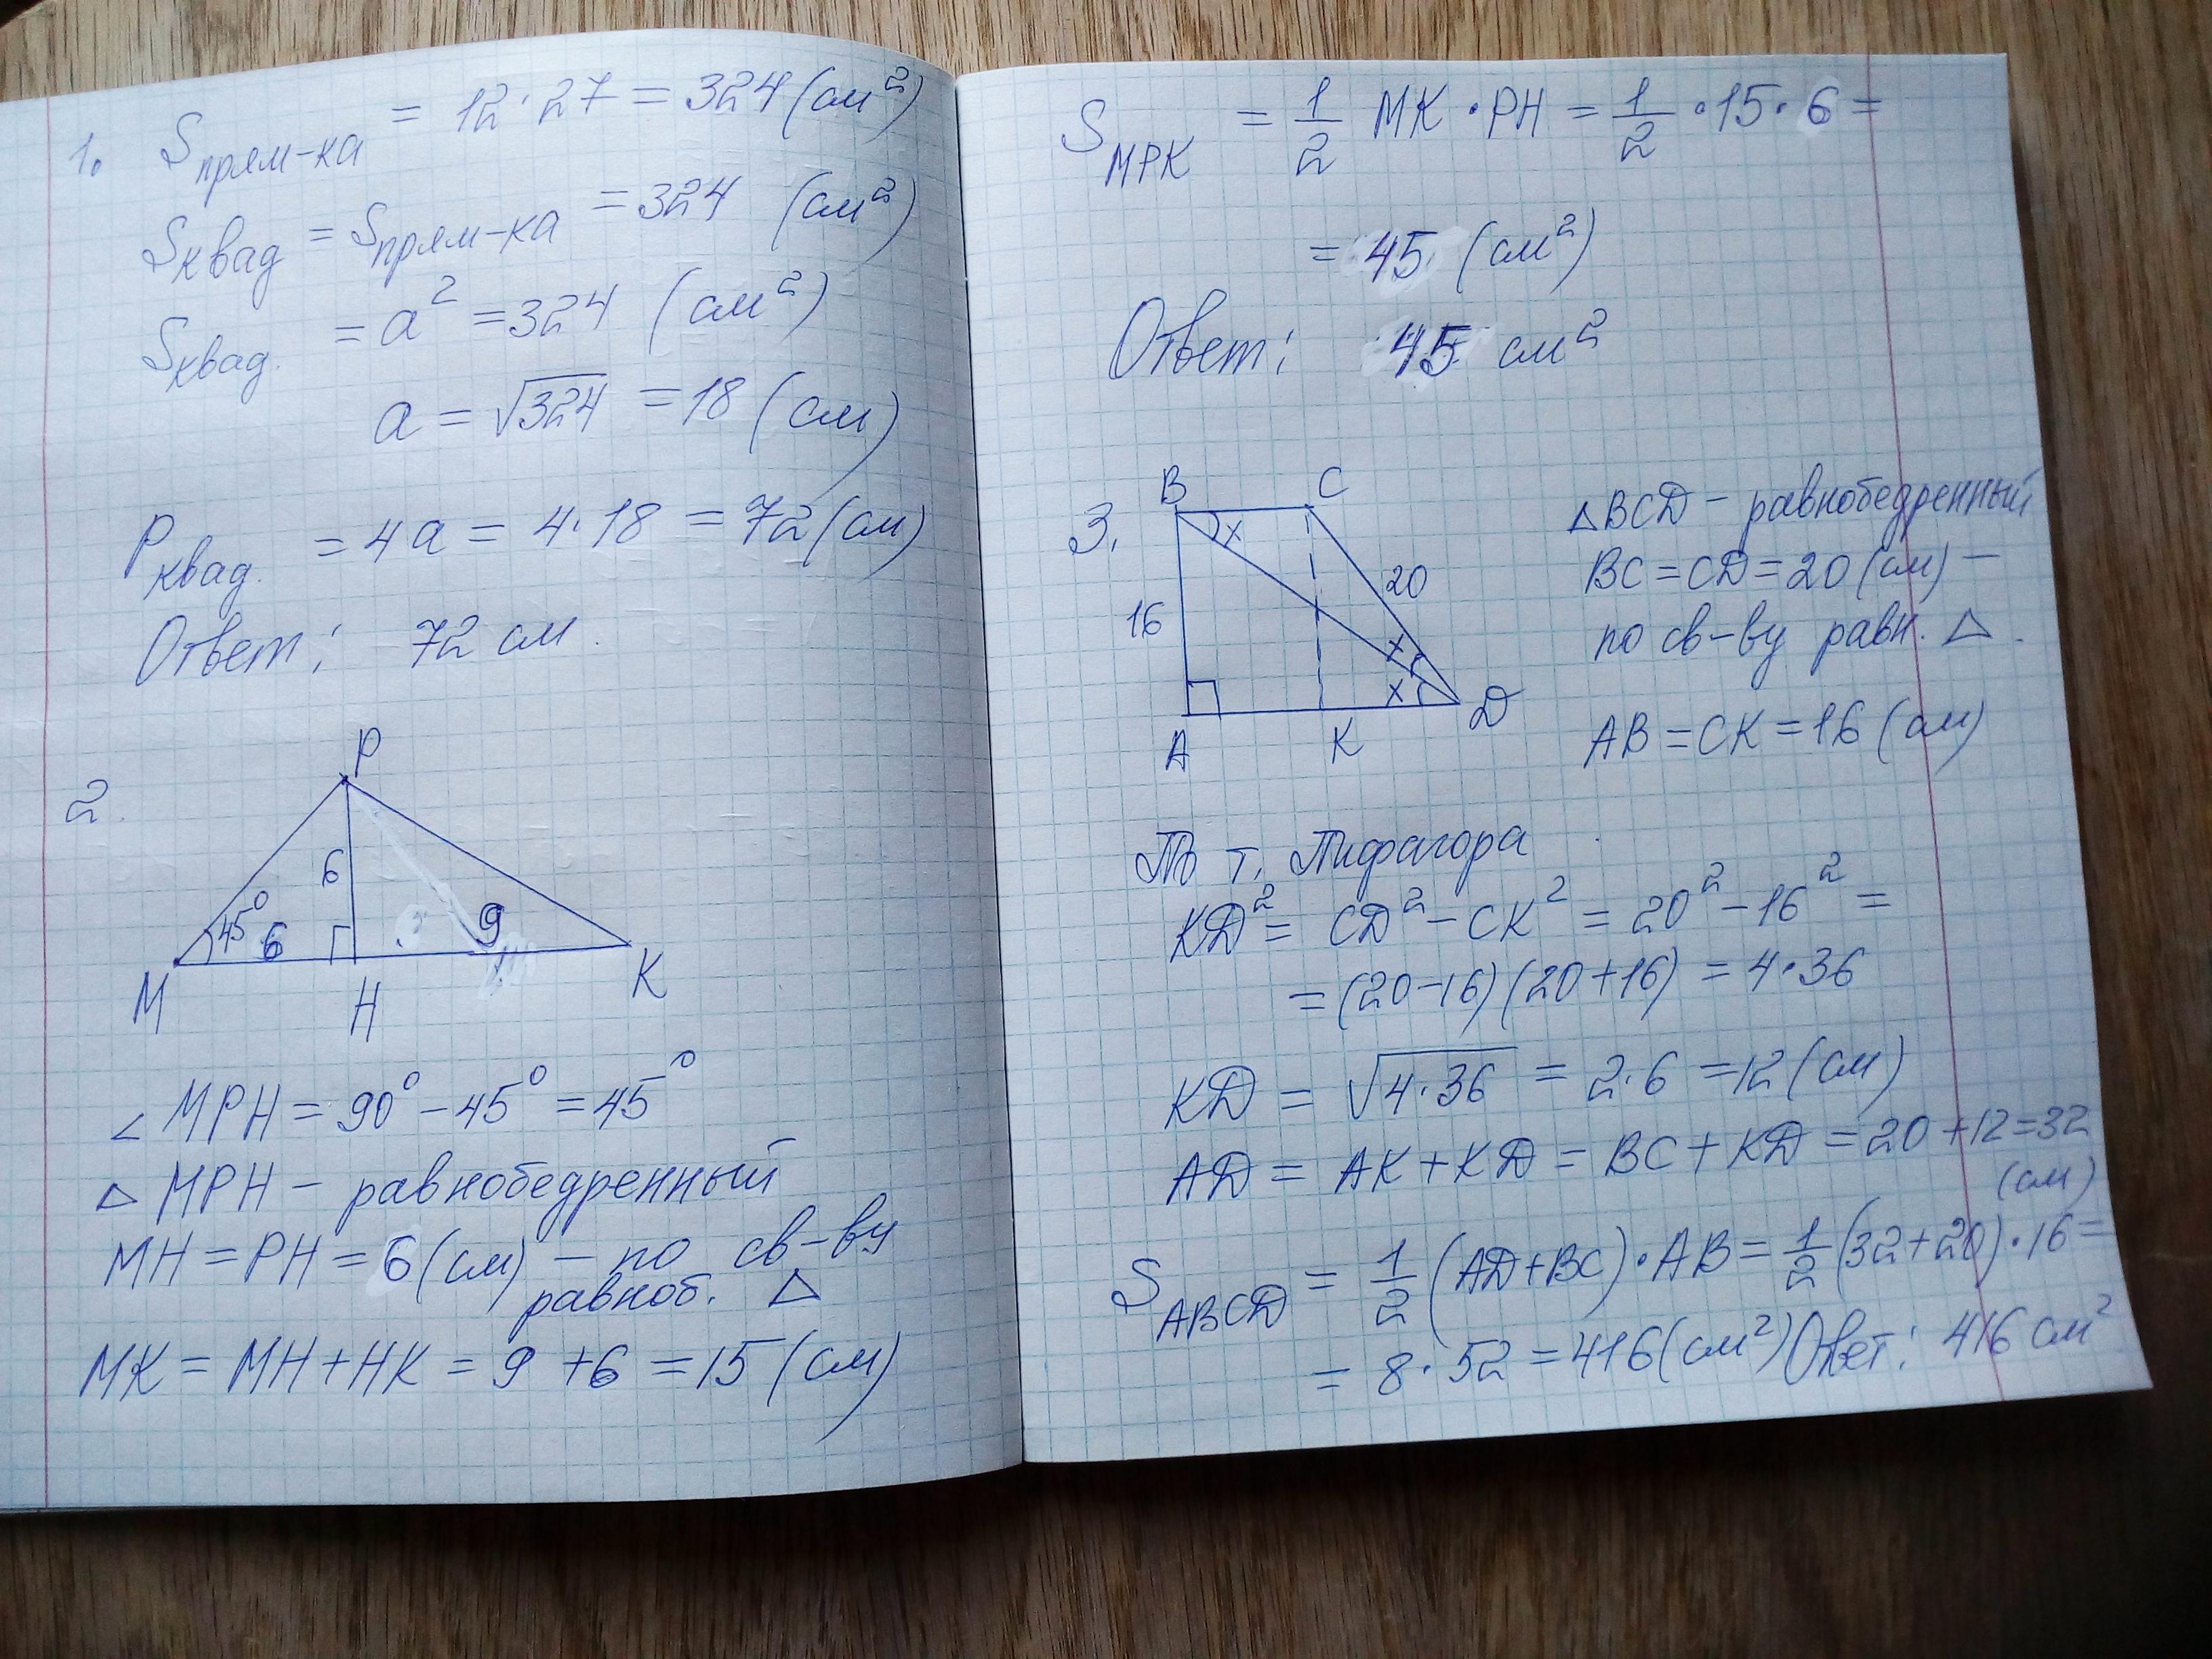 1. Sпрям-ка = 12·27 = 324 (см²)
Sквад = Sпрям-ка = 324 (см²)
Sквад. = a² = 324 (см²)
a = √324 = 18 (см)
Pквад. = 4a = 4·18 = 72 (см)
Ответ: 72 см.
2.
P
6
45°
6
9
M
H
K
∠MPH = 90° - 45° = 45°
△MPH - равнобедренный
MH = PH = 6 (см) - по св-ву
равноб. △
MK = MH + HK = 9 + 6 = 15 (см)
S MPK = 1/2 MK · PH = 1/2 · 15 · 6 =
= 45 (см²)
Ответ: 45 см²
3.
B
C
x
20
16
x
x
A
K
D
△BCD - равнобедренный
BC = CD = 20 (см) -
по св-ву равн. △.
AB = CK = 16 (см)
По т. Пифагора
KD² = CD² - CK² = 20² - 16² =
= (20-16)(20+16) = 4·36
KD = √4·36 = 2·6 = 12 (см)
AD = AK + KD = BC + KD = 20 + 12 = 32
(см)
S ABCD = 1/2 (AD+BC)·AB = 1/2 (32+20)·16 =
= 8·52 = 416 (см²) Ответ: 416 см²